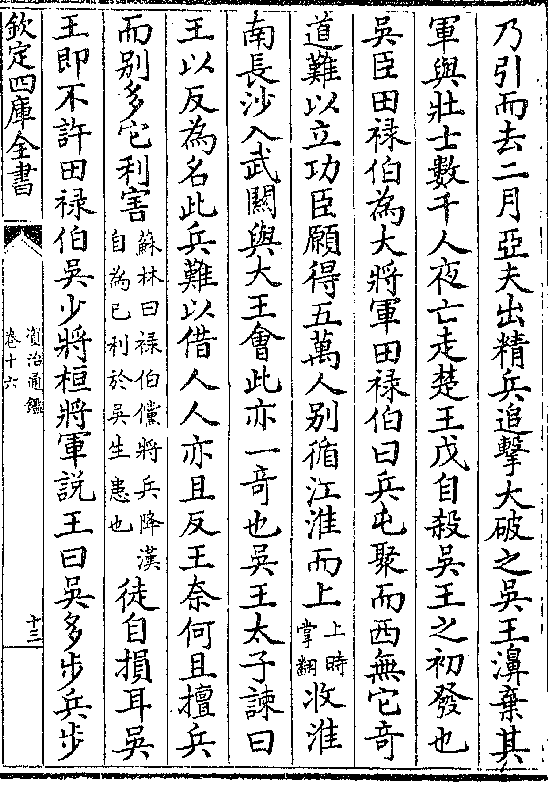 乃引而去二月亞夫出精兵追擊大破之吳王濞棄其
軍與壯士數千人夜亡走楚王戊自殺吳王之初發也
吳臣田祿伯為大將軍田祿伯曰兵屯聚而西無它奇
道難以立功臣願得五萬人别循江淮而上上時掌翻收淮
南長沙入武關與大王會此亦一奇也吳王太子諫曰
王以反為名此兵難以借人人亦且反王奈何且擅兵
而别多它利害蘇林曰禄伯儻將兵降漢自為已利於吳生患也徒自損耳吳
王即不許田禄伯吳少將桓將軍説王曰吳多步兵步
欽定四庫全書
資治通鑑
卷十六
十三